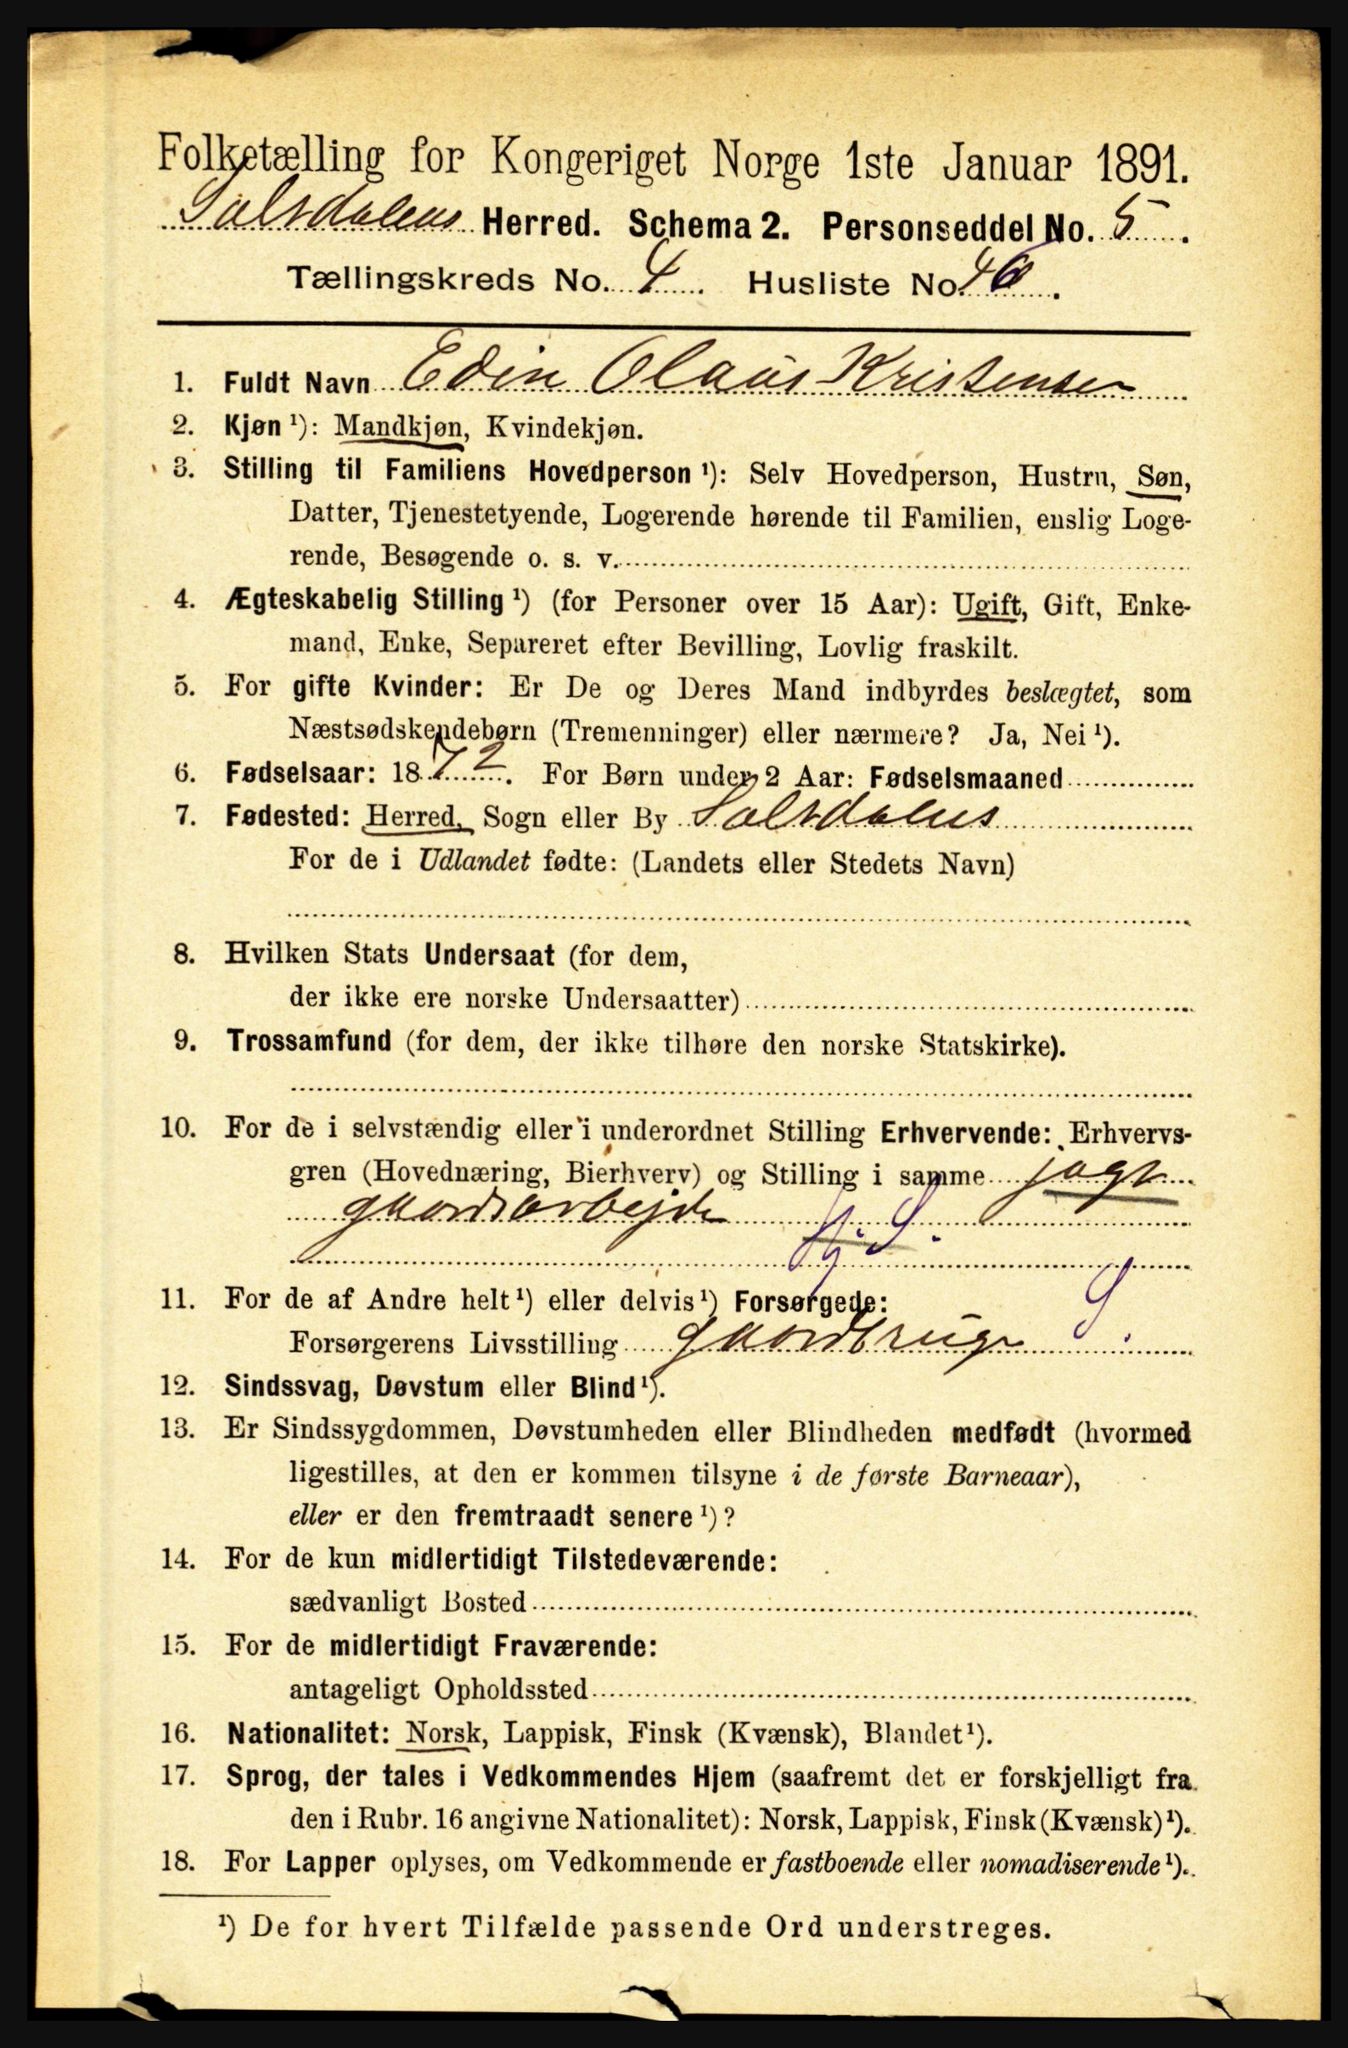 Folketælling for Kongeriget Norge 1ste Januar 1891.
Saltdalens Herred. Schema 2. Personseddel No. 5.
Tællingskreds No. 4. Husliste No. 46.
1. Fuldt Navn Edin Olaüs Kristensen
2. Kjøn ¹): Mandkjøn, Kvindekjøn.
3. Stilling til Familiens Hovedperson ¹): Selv Hovedperson, Hustru, Søn,
Datter, Tjenestetyende, Logerende hørende til Familien, enslig Loge-
rende, Besøgende o. s. v.
4. Ægteskabelig Stilling ¹) (for Personer over 15 Aar): Ugift, Gift, Enke-
mand, Enke, Separeret efter Bevilling, Lovlig fraskilt.
5. For gifte Kvinder: Er De og Deres Mand indbyrdes beslægtet, som
Næstsødskendebørn (Tremenninger) eller nærmere? Ja, Nei ¹).
6. Fødselsaar: 1872. For Børn under 2 Aar: Fødselsmaaned
7. Fødested: Herred, Sogn eller By Saltdalens
For de i Udlandet fødte: (Landets eller Stedets Navn)
8. Hvilken Stats Undersaat (for dem,
der ikke ere norske Undersaatter)
9. Trossamfund (for dem, der ikke tilhøre den norske Statskirke).
10. For de i selvstændig eller i underordnet Stilling Erhvervende: Erhvervs-
gren (Hovednæring, Bierhverv) og Stilling i samme jagt
gaardsarbejde
S.
11. For de af Andre helt ¹) eller delvis ¹) Forsørgede:
Forsørgerens Livsstilling gaardbruge S.
12. Sindssvag, Døvstum eller Blind ¹).
13. Er Sindssygdommen, Døvstumheden eller Blindheden medfødt (hvormed
ligestilles, at den er kommen tilsyne i de første Barneaar),
eller er den fremtraadt senere ¹)?
14. For de kun midlertidigt Tilstedeværende:
sædvanligt Bosted
15. For de midlertidigt Fraværende:
antageligt Opholdssted
16. Nationalitet: Norsk, Lappisk, Finsk (Kvænsk), Blandet ¹).
17. Sprog, der tales i Vedkommendes Hjem (saafremt det er forskjelligt fra
den i Rubr. 16 angivne Nationalitet): Norsk, Lappisk, Finsk (Kvænsk) ¹).
18. For Lapper oplyses, om Vedkommende er fastboende eller nomadiserende ¹).
¹) De for hvert Tilfælde passende Ord understreges.